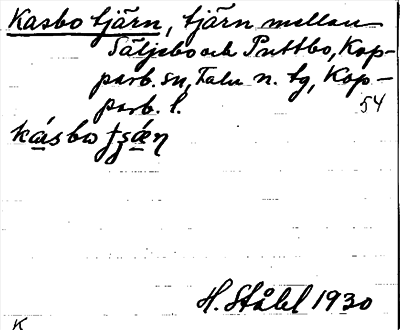 Kasbo tjärn, tjärn mellan
Säljsbo och Puttbo, Kop-
parb. sn, Falu n. tg, Kop-
parb. l.
54
H. Ståhl 1930
K